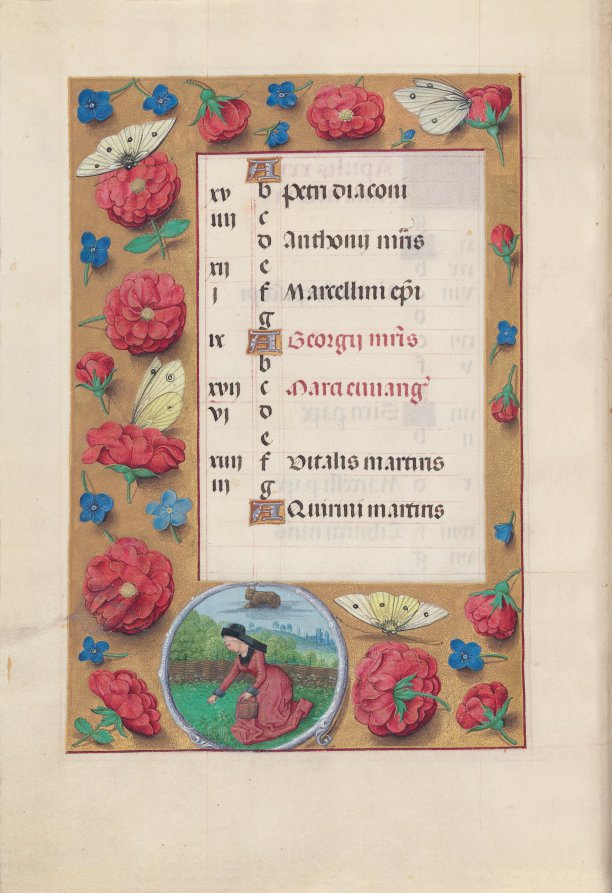 A
xv b Petri diaconi
iiii c
d Anthonij mr̃is
xii e
i f Marcellini ep̃i
g
ix A Georgij mr̃is
b
xvii c Marci euuang'
vi d
e
xiiii f Vitalis martiris
iii g
A Quirini martiris